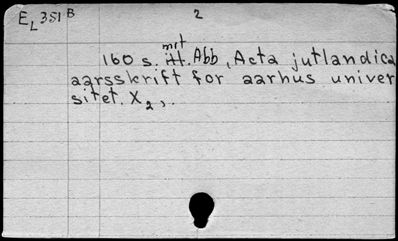 E_L 351 B 2
mit
160 s. itt. Abb, Acta jutlandica
aarsskrift for aarhus univer
sitet. X 2,.